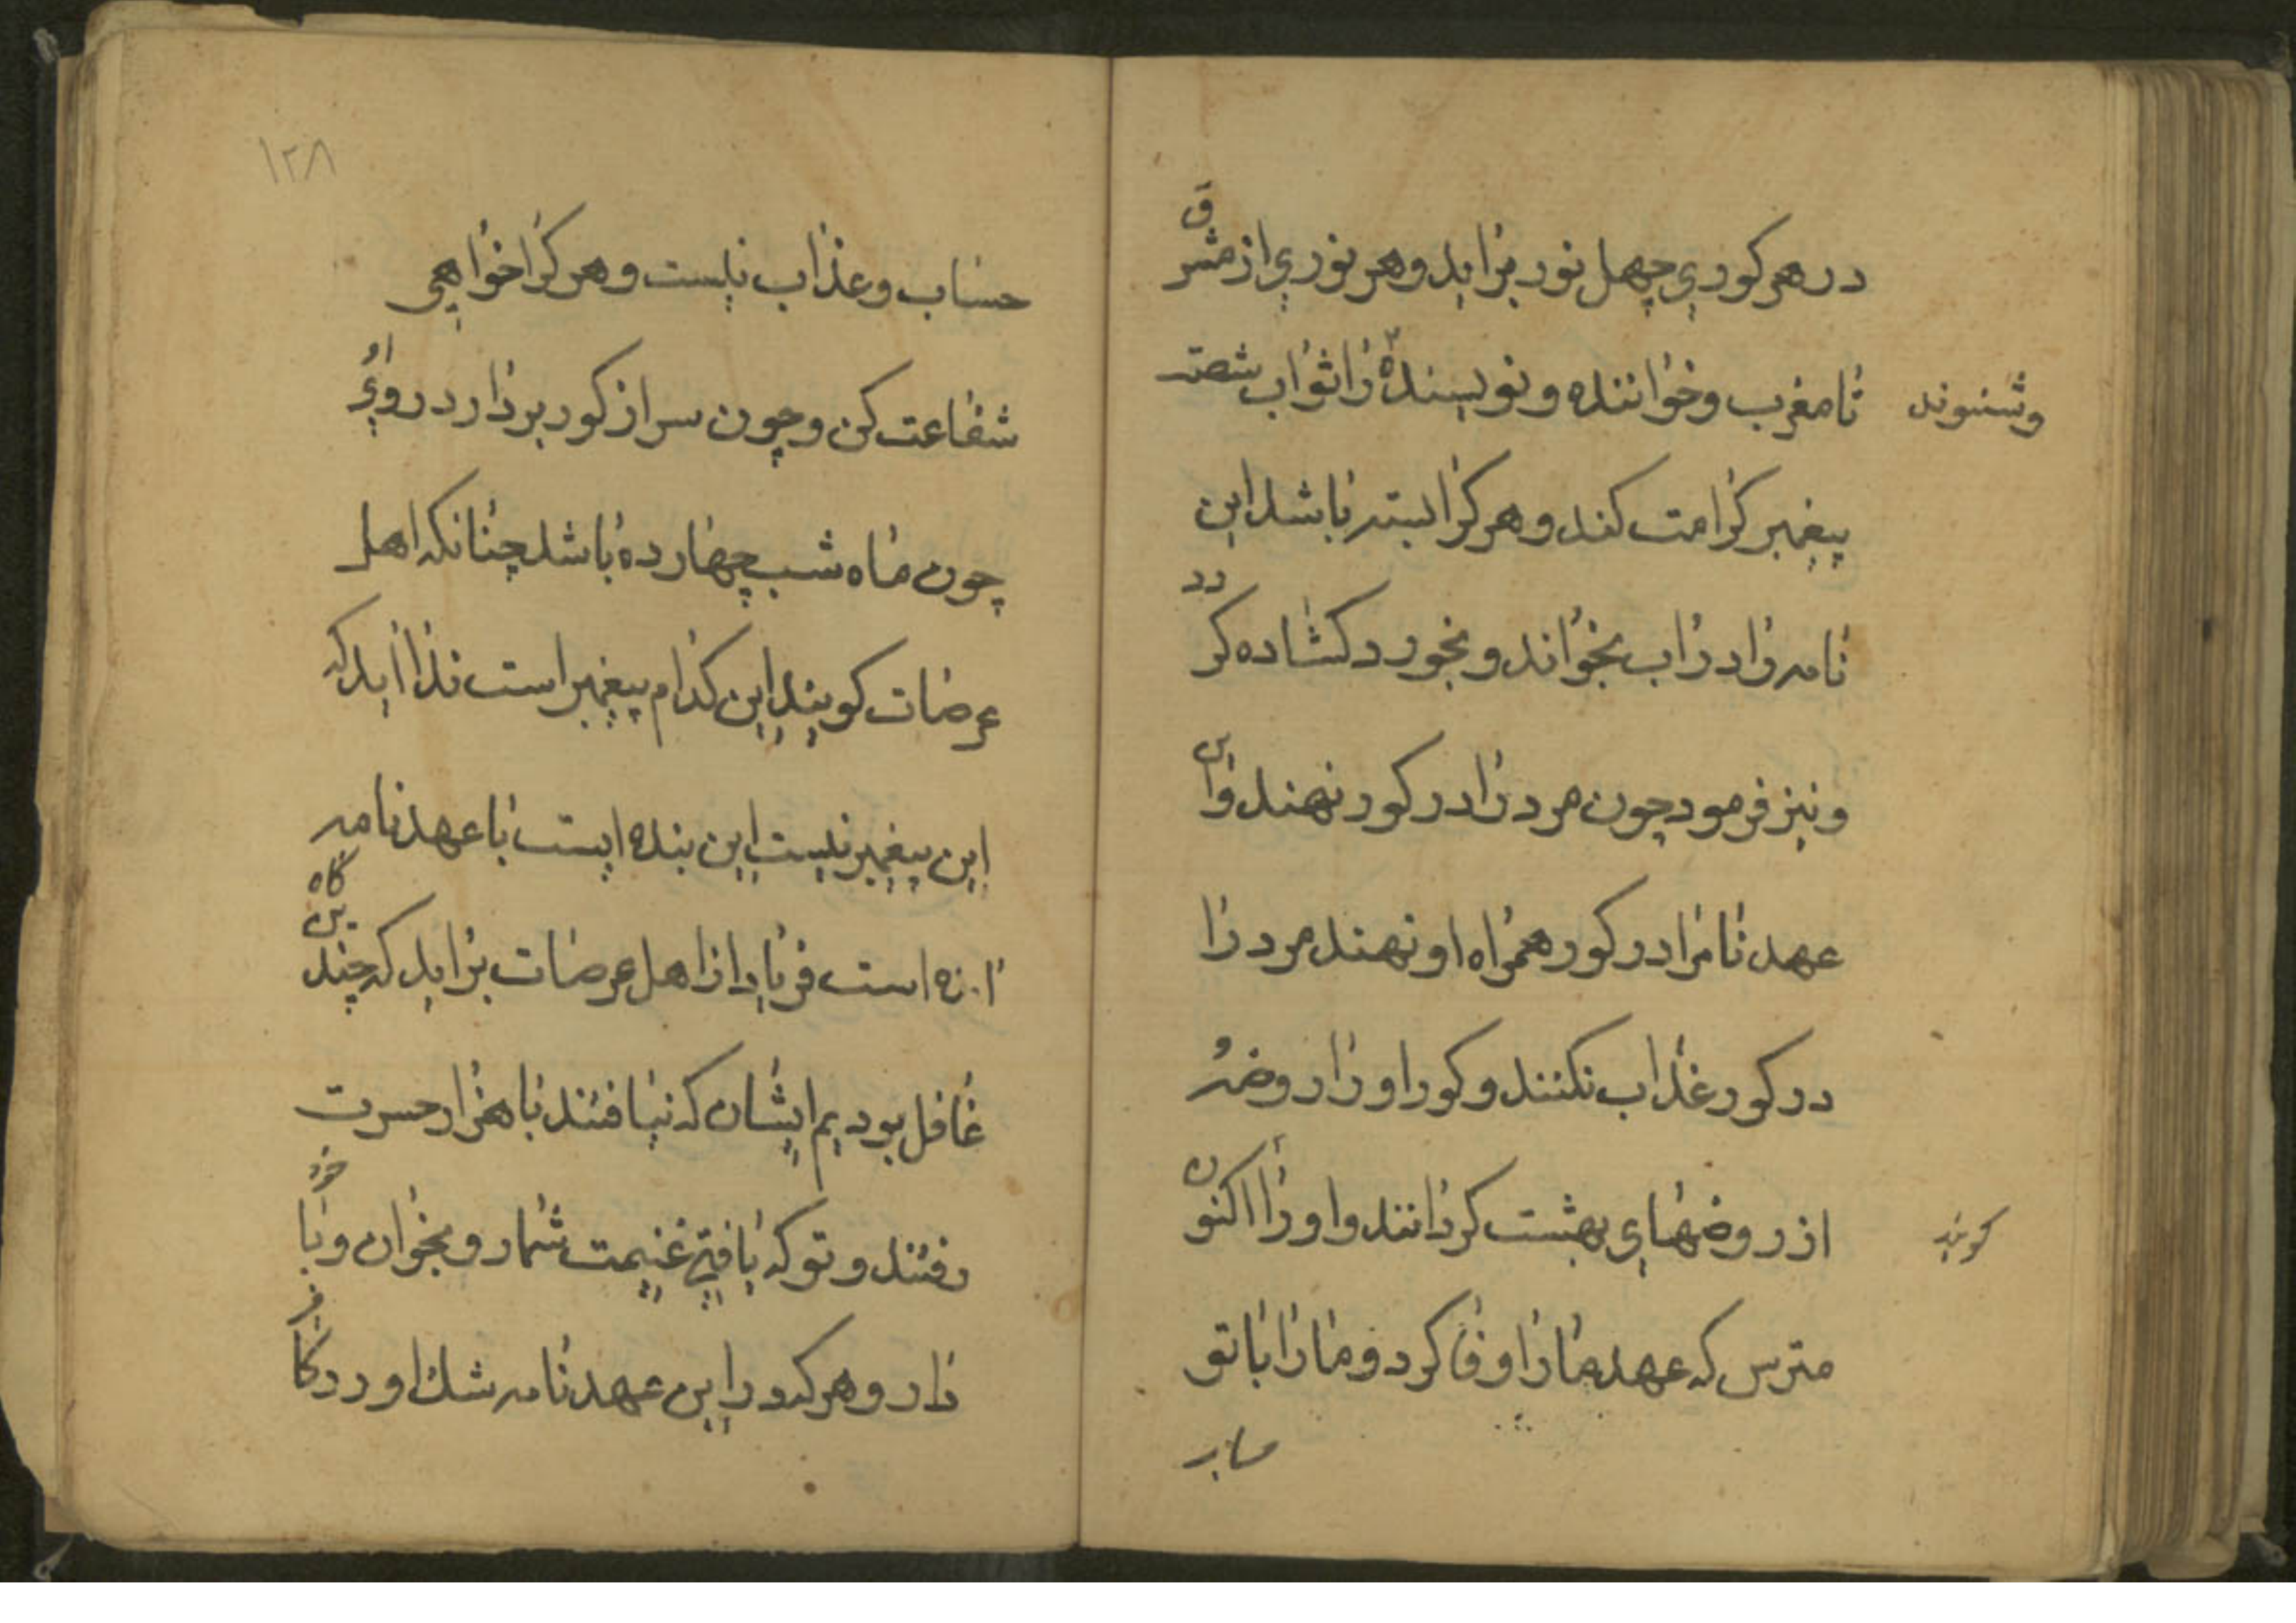 در هر کوری چهل نور بزاید و هر نوری از مشرق
تا مغرب و خواننده و نویسنده را ثواب شصت
وشنوند
پیغمبر کرامت کند و هر کرا بسته باشد این
نامه را در آب بخواند و بخورد کشاده کردد
و نیز فرمود چون مرد را در کور نهند و این
عهد نامرا در کور همراه او نهند مرد را
در کور عذاب نکنند و کور او را روضه
از روضهای بهشت کردانند و او را اکنون
کویند
مترس که عهد ما را وفا کرد و ما را با تو
۱۲۸
حساب و عذاب نیست و هر کرا خواهی
شفاعت کن و چون سر از کور بردارد روی او
چون ماه شب چهارده باشد چنانکه اهل
عرصات کویند این کدام پیغمبر است ندا آید که
این پیغمبر نیست این بنده ایست با عهد نامه
است فریاد از اهل عرصات بزاید که چندین کاه
غافل بودیم ایشان که نیافتند با هزار حسرت
رفتند و تو که یافتی غنیمت شمار و بخوان و با خود
دار و هر که در این عهد نامه شک اورد کافر